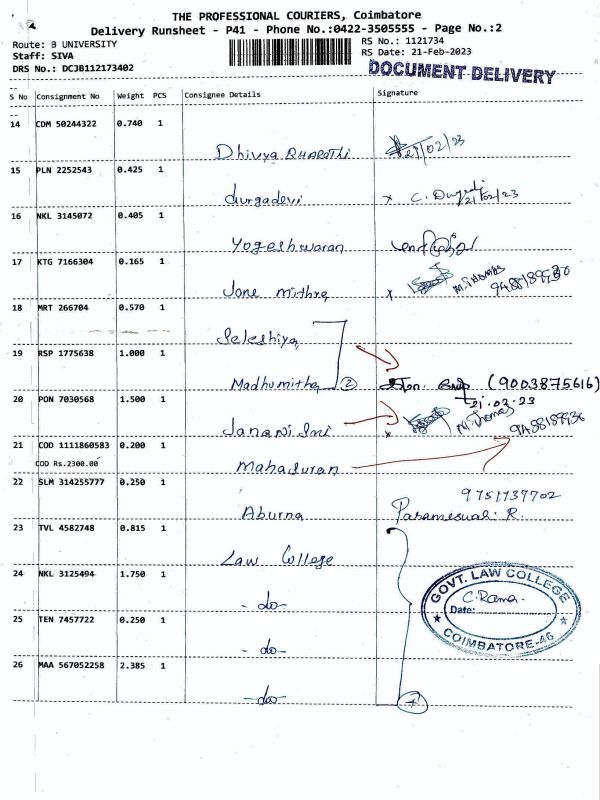 THE PROFESSIONAL COURIERS, Coimbatore
Delivery Runsheet - P41 - Phone No.:0422-3505555 - Page No.:2
Route: B UNIVERSITY
Staff: SIVA
DRS No.: DCJB112173402
RS No.: 1121734
RS Date: 21-Feb-2023
DOCUMENT DELIVERY
S No Consignment No Weight PCS Consignee Details Signature
14 CDM 50244322 0.740 1
Dhivya BHARATHI 21/02/23
15 PLN 2252543 0.425 1
durgadevi x C. Durgadevi 21/02/23
16 NKL 3145072 0.405 1
Yogeshwaran
17 KTG 7166304 0.165 1
Jone mithra x M. Thomas 9488189930
18 MRT 266704 0.570 1
Seleshiya
19 RSP 1775638 1.000 1
Madhumitha 2 (9003875616)
20 PON 7030568 1.500 1
21.02.23
Janani Sri x M. Thomas
21 COD 1111860583 0.200 1
9488189930
COD Rs.2300.00
Mahasuran
22 SLM 314255777 0.250 1
9751737702
Aburna Parameswari. R.
23 TVL 4582748 0.815 1
Law College
24 NKL 3125494 1.750 1
- do -
25 TEN 7457722 0.250 1
- do -
26 MAA 567052258 2.385 1
- do - 4
GOVT. LAW COLLEGE
C. Rama
Date:
COIMBATORE-46